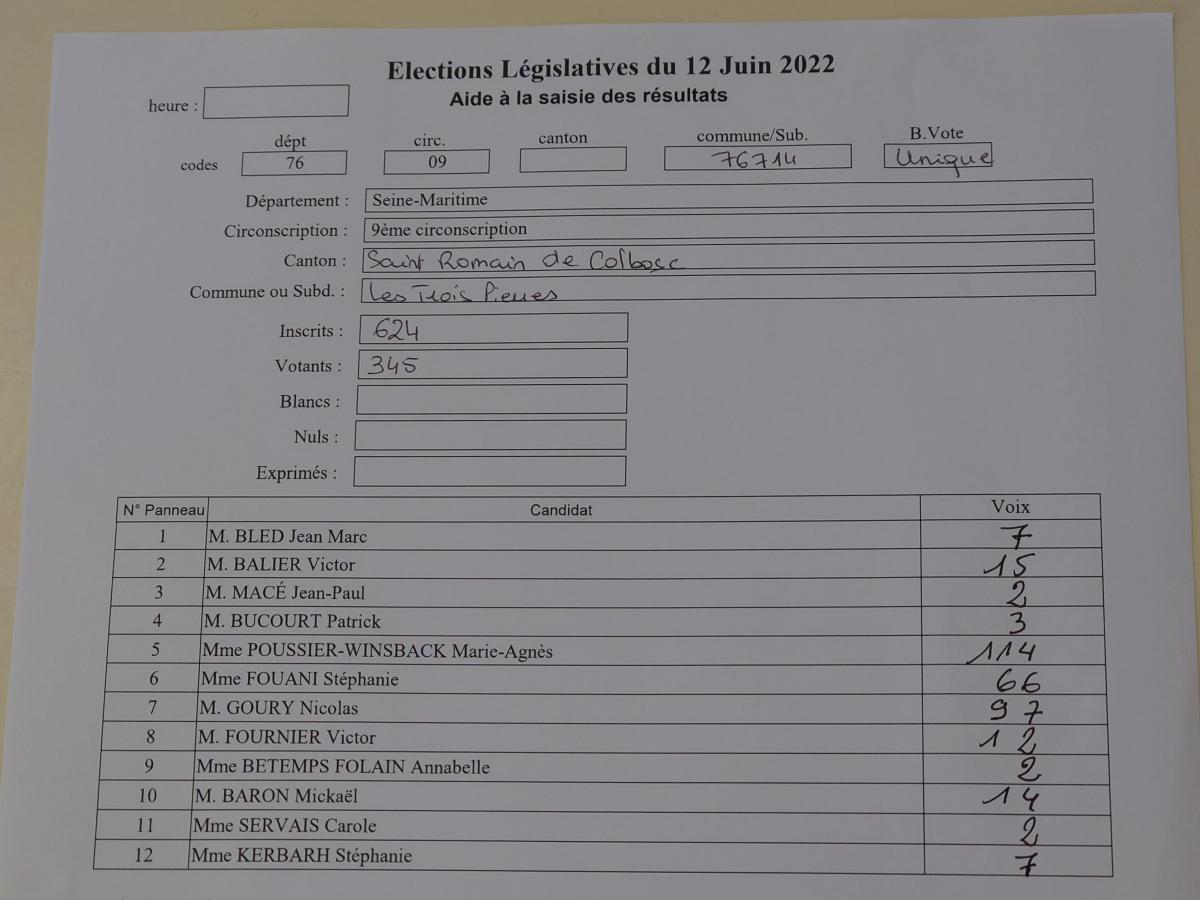 Elections Législatives du 12 Juin 2022
Aide à la saisie des résultats
heure :
dépt circ. canton commune/Sub. B.Vote
codes 76 09 76714 Unique
Département : Seine-Maritime
Circonscription : 9ème circonscription
Canton : Saint Romain de Colbosc
Commune ou Subd. : Les Trois Pierres
Inscrits : 624
Votants : 345
Blancs :
Nuls :
Exprimés :
N° Panneau Candidat Voix
1 M. BLED Jean Marc 7
2 M. BALIER Victor 15
3 M. MACÉ Jean-Paul 2
4 M. BUCOURT Patrick 3
5 Mme POUSSIER-WINSBACK Marie-Agnès 114
6 Mme FOUANI Stéphanie 66
7 M. GOURY Nicolas 97
8 M. FOURNIER Victor 12
9 Mme BETEMPS FOLAIN Annabelle 2
10 M. BARON Mickaël 14
11 Mme SERVAIS Carole 2
12 Mme KERBARH Stéphanie 7